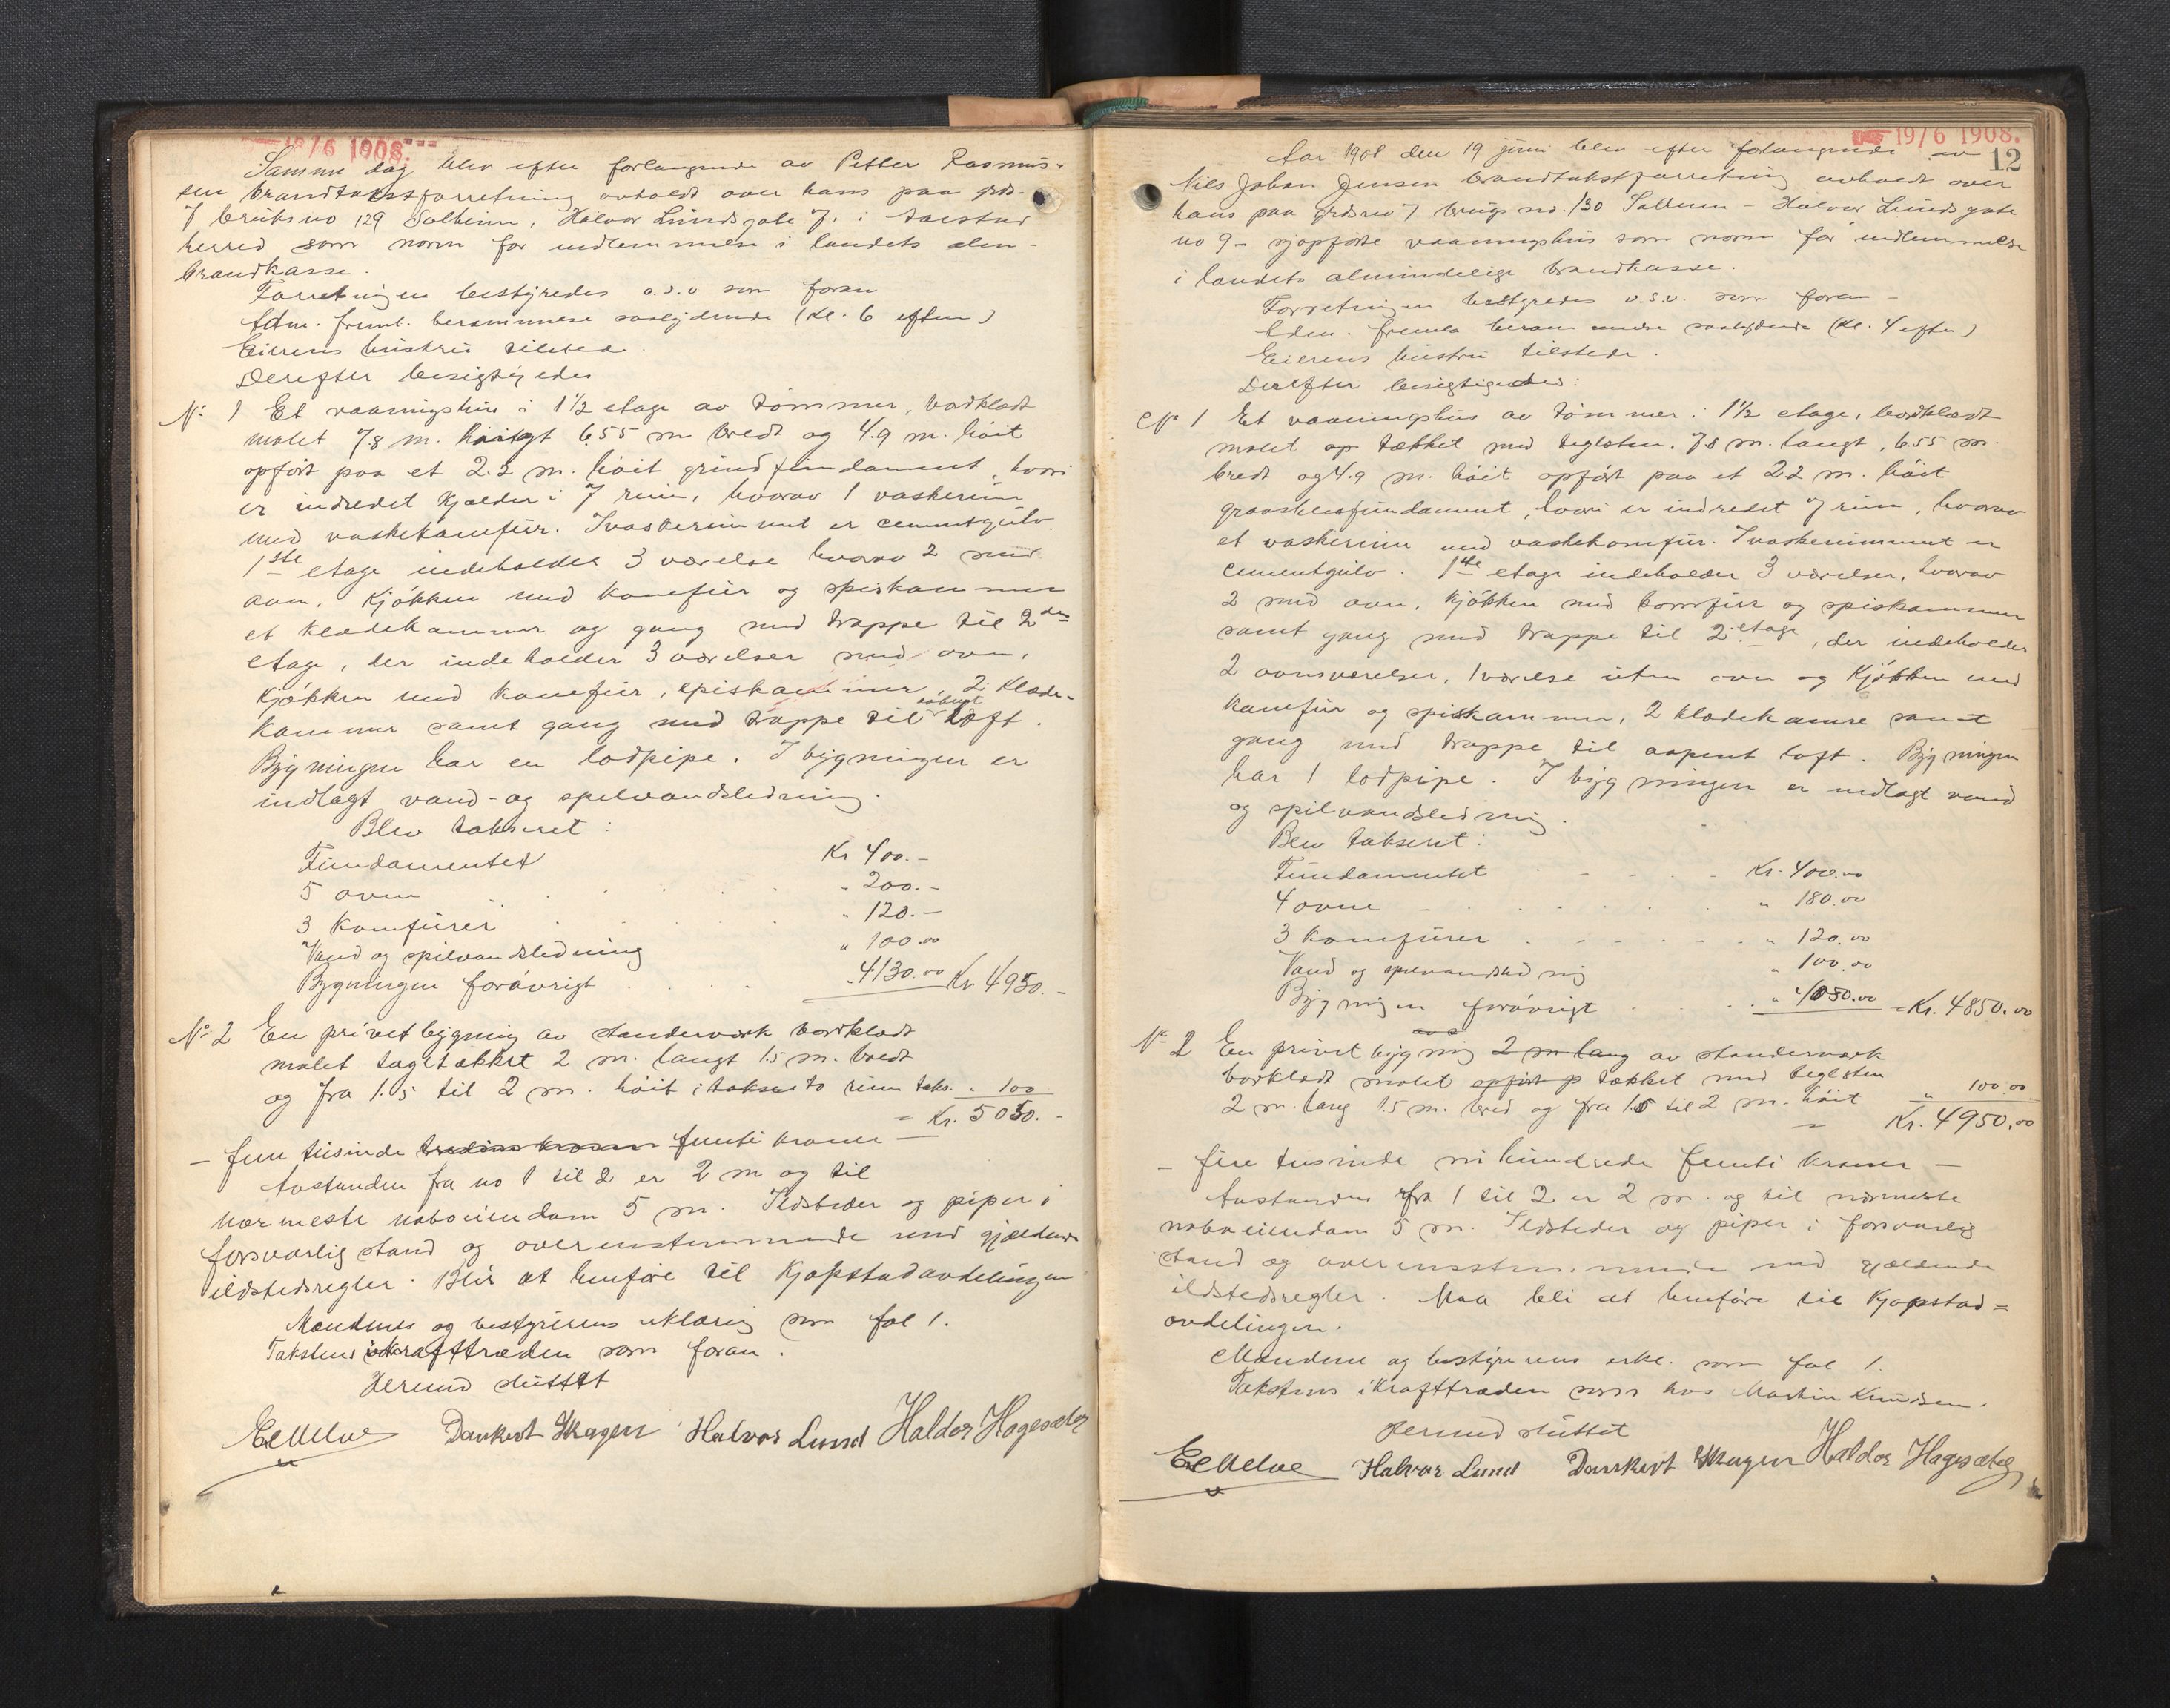 19/6 1908.
Samme dag blev efter forlangende av Petter Rasmus-
sen brandtakstforretning avholdt over hans paa grds.
7 bruks no 129 Solheim, Halvor Lunds gate 7, i Aarstad
herred som norm for indlemmelse i landets alm.
brandkasse.
Forretningen bestyredes o.s.v som foran
Edm. freml. berammelse saalydende (Kl. 6 eftm)
Eierens hustru tilstede.
Derefter besigtigedes
No 1 Et vaaningshus i 1 1/2 etage av tømmer, bordklædt
malet 7.8 m. langt 6.55 m bredt og 4.9 m. høit
opført paa et 2.2 m. høit grundfundament, hvori
er indredet kjælder i 7 rum, hvorav 1 vaskerum
med vaskekomfur. I vaskerummet er cementgulv.
1ste etage indeholder 3 værelse hvorav 2 med
ovn. Kjøkken med komfur og spiskammer
et klædekammer og gang med trappe til 2den
etage, der indeholder 3 værelser med ovn,
Kjøkken med komfur, spiskammer, 2 klæde-
kammer samt gang med trappe til aapent loft.
Bygningen har en lodpipe. I bygningen er
indlagt vand- og spilvandsledning.
Blev takseret:
Fundamentet Kr 400.-
5 ovne " 200.-
3 Komfurer " 120.-
Vand og spilvandsledning " 100.00
Bygningen forøvrigt " 4130.00 Kr 4950.-
No 2 En privetbygning av standerverk bordklædt
malet tagtækket 2 m. langt 1.5 m. bredt
og fra 1.5 til 2 m. høit i to rum taks. " 100
= Kr. 5050.-
- fem tusinde tredive kroner femti kroner -
Avstanden fra no 1 til 2 er 2 m og til
nærmeste naboeiendom 5 m. Ildsteder og piper i
forsvarlig stand og overensstemmende med gjældende
ildstedsregler. Blir at henføre til Kjøpstadavdelingen
Mændenes og bestyrerens erklæring som fol 1.
Takstens ikrafttræden som foran.
Hermed sluttet
Dankert Skagen Halvor Lund Haldor Hagesæter
19/6 1908.
12
Aar 1908 den 19 juni blev efter forlangende av
Nils Johan Jensen brandtakstforretning avholdt over
hans paa grdsno 7 brugs no. 130 Solheim - Halvor Lunds gate
no 9 - nyopførte vaaningshus som norm for indlemmelse
i landets almindelige brandkasse.
Forretningen bestyredes o.s.v. som foran -
Edm. fremla berammelse saalydende (Kl. 4 eftm)
Eierens hustru tilstede.
Derefter besigtigedes:
No 1 Et vaaningshus av tømmer i 1 1/2 etage, bordklædt
malet og tækket med teglsten. 7.8 m. langt, 6.55 m.
bredt og 4.9 m. høit opført paa et 2.2 m. høit
graastensfundament, hvori er indredet 7 rum, hvorav
et vaskerum med vaskekomfur. I vaskerummet er
cementgulv. 1ste etage indeholder 3 værelser, hvorav
2 med ovn, kjøkken med komfur og spiskammer
samt gang med trappe til 2. etage, der indeholder
2 ovnsværelser, 1 værelse uten ovn og Kjøkken med
Komfur og spiskammer, 2 klædekamre samt
gang med trappe til aapent loft. Bygningen
har 1 lodpipe. I bygningen er indlagt vand
og spilvandsledning.
Blev takseret:
Fundamentet Kr. 400.00
4 ovne " 180.00
3 Komfurer " 120.00
Vand og spilvandsledning " 100.00
Bygningen forøvrigt " 4050.00 = Kr. 4850.00
No 2 En privetbygning 2 m lang av standerverk
bordklædt malet opført p tækket med teglsten
2 m. lang 1.5 m. bred og fra 1.5 til 2 m. høit " 100.00
= Kr. 4950.00
- fire tusinde ni hundrede femti kroner -
Avstanden fra 1 til 2 er 2 m. og til nærmeste
naboeiendom 5 m. Ildsteder og piper i forsvarlig
stand og overensstemmende med gjældende
ildstedsregler. Maa bli at henføre til Kjøpstad=
avdelingen.
Mændene og bestyrerens erkl. som fol 1.
Takstens ikrafttræden som hos Martin Knudsen.
Hermed sluttet
Halvor Lund Dankert Skagen Haldor Hagesæter